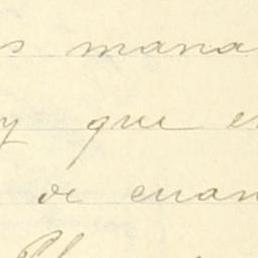 s mana
y que e
de cuan